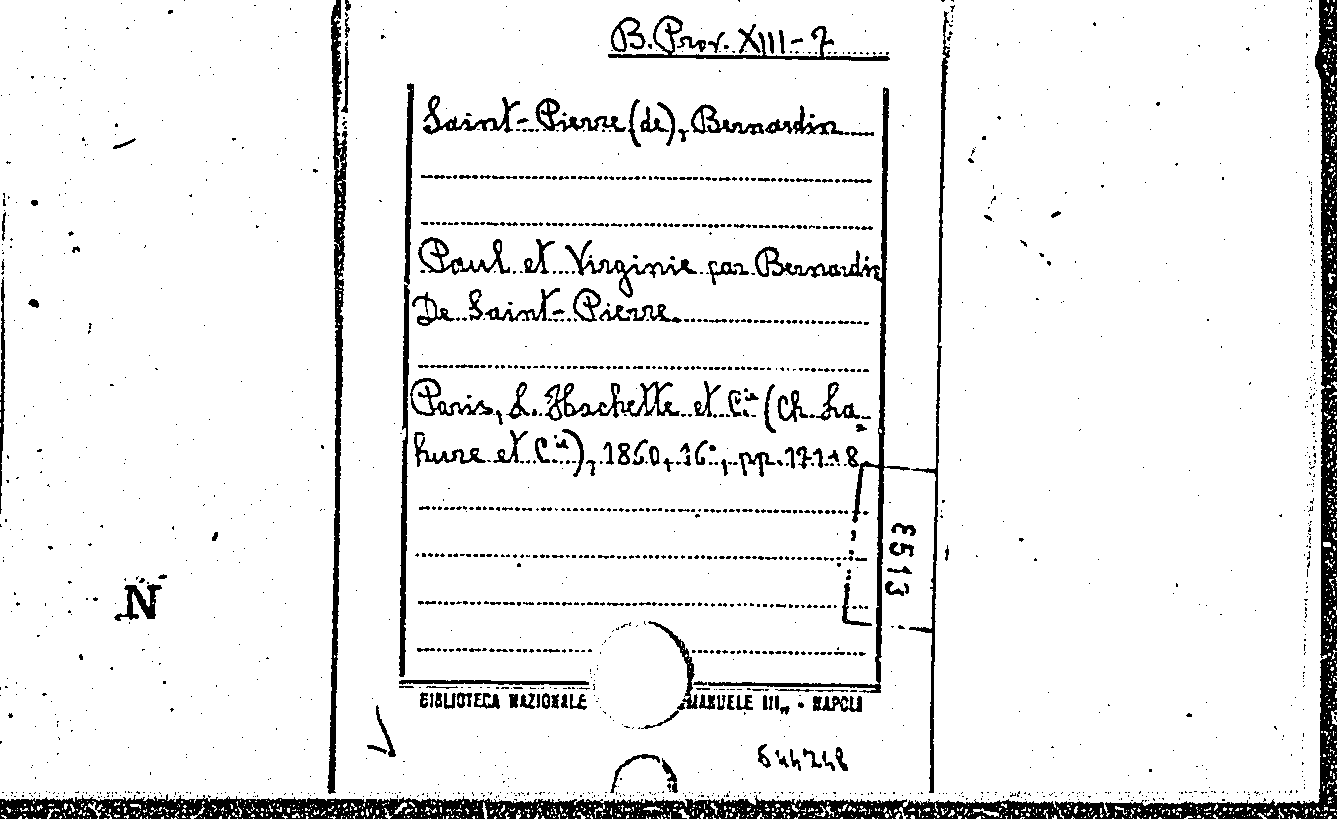 B. Prov. XIII-7
Saint-Pierre (de), Bernardin
Paul et Virginie par Bernardin
De Saint-Pierre.
Paris, L. Hachette et C.ie (Ch. La-
hure et C.ie), 1860, 16°, pp. 171+8
E513
N
BIBLIOTECA NAZIONALE MANUELE III„ - NAPOLI
644748